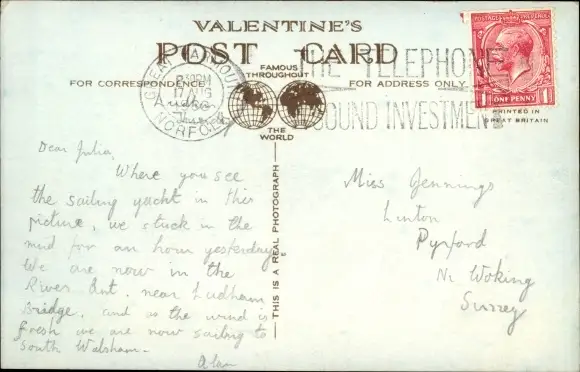 VALENTINE'S
POST CARD
FAMOUS
THROUGHOUT
THE
WORLD
FOR CORRESPONDENCE
FOR ADDRESS ONLY
PRINTED IN
GREAT BRITAIN
POSTAGE REVENUE
1 ONE PENNY 1
GREAT YARMOUTH
30PM
17 AUG
NORFOLK
THE TELEPHONE
SOUND INVESTMENT
THIS IS A REAL PHOTOGRAPH
Dear Julia,
Where you see
the sailing yacht in this
picture, we stuck in the
mud for an hour yesterday
We are now in the
River Ant, near Ludham
Bridge, and as the wind is
fresh we are now sailing to
South Walsham-
Alan
Miss Jennings
Linton
Pyrford
Nr Woking
Surrey